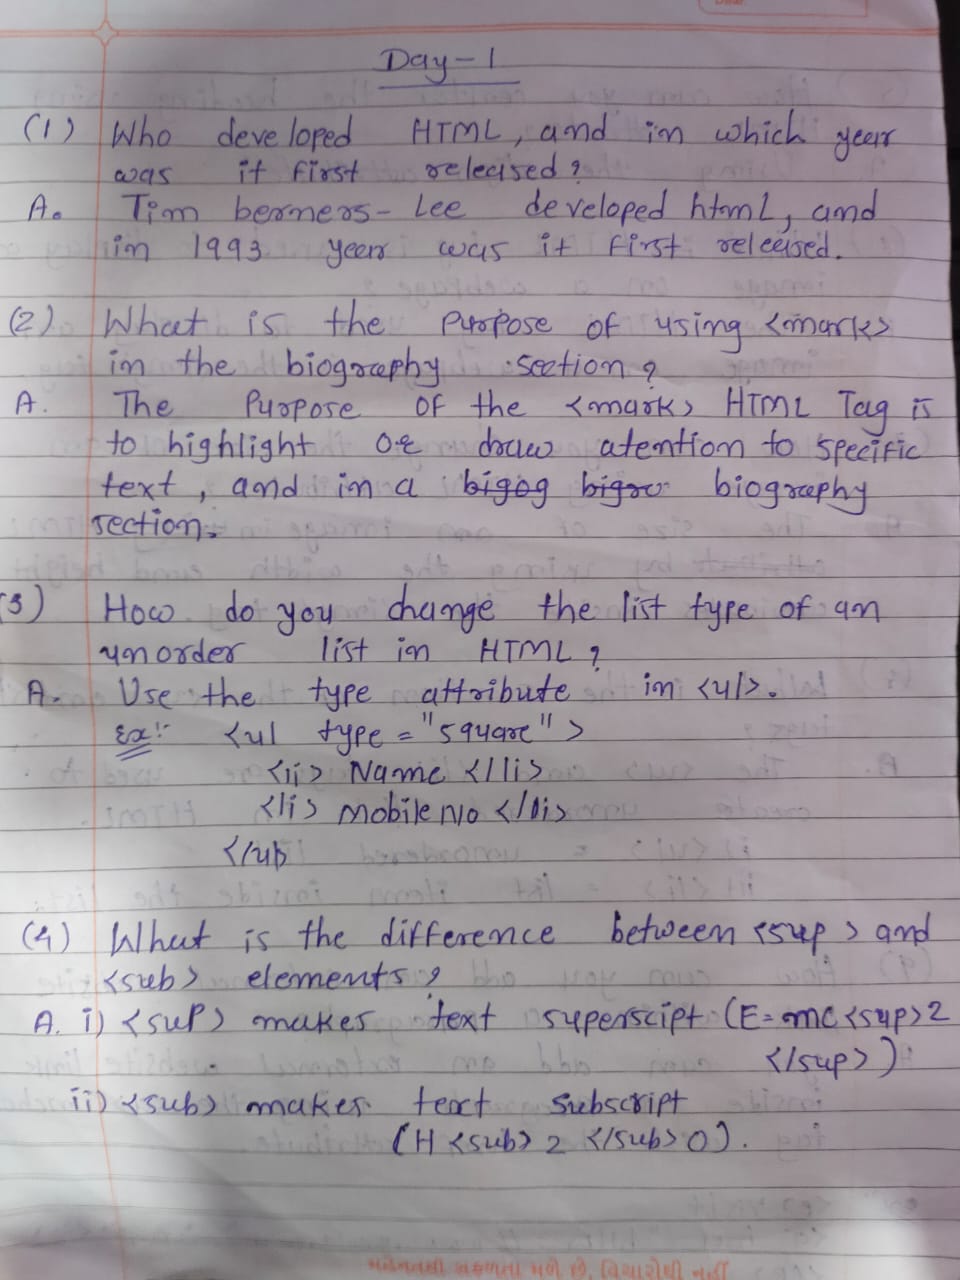 Day-1
(1) Who developed HTML, and in which year
was it first released?
A. Tim berners-Lee developed html, and
in 1993 year was it first released.
(2) What is the purpose of using <mark>
in the biography section?
A. The Purpose of the <mark> HTML Tag is
to highlight or draw atention to specific
text, and in a bigog bigro biography
section.
(3) How do you change the list type of an
unorder list in HTML?
A. Use the type attribute in <ul>.
Ex:- <ul type="square">
<li> Name </li>
<li> Mobile No </li>
</ul>
(4) What is the difference between <sup> and
<sub> elements?
A. i) <sup> makes text superscipt (E=mc<sup>2
</sup>)
ii) <sub> makes text subscript
(H <sub> 2 </sub> O).